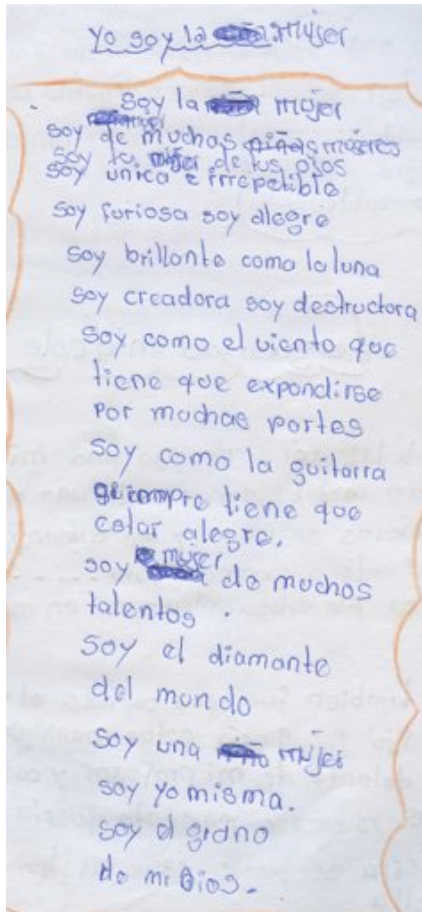 Yo soy la mujer
Soy la mujer
soy de muchas niñas mujeres
Soy la niña de tus ojos
soy unica e irrepetible
soy furiosa soy alegre
soy brillante como la luna
soy creadora soy destructora
soy como el viento que
tiene que expandirse
por muchas partes
soy como la guitarra
siempre tiene que
estar alegre.
soy mujer de muchos
talentos.
Soy el diamante
del mundo
Soy una mujer
soy yo misma.
soy el
de mi Dios.